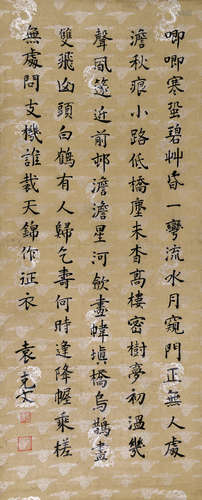 唧唧寒蛩碧艸昏一彎流水月窺門正無人處
澹秋痕小路低橋塵未杳高樓密樹夢初溫幾
聲風篴近前邨澹澹星河斂畫幃填橋烏鵲盡
雙飛函頭白鶴有人歸乞壽何時逢降幄乘槎
無處問支機誰裁天錦作征衣
袁克文